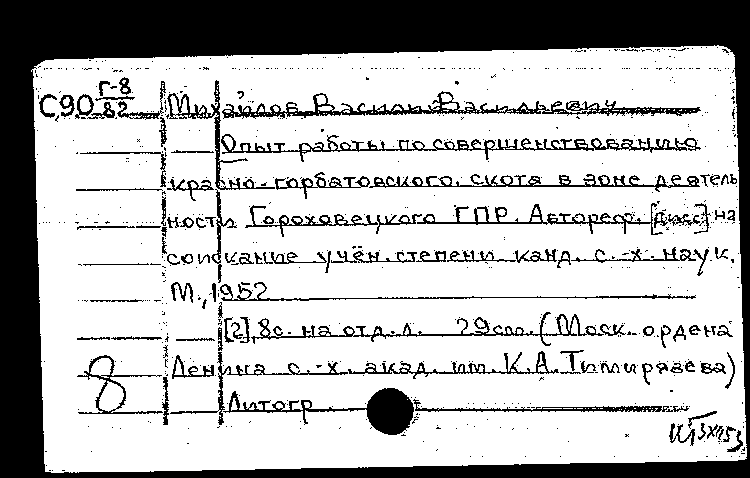 С90 Г-8/82 Михайлов Василий Васильевич
Опыт работы по совершенствованию
красно-горбатовского скота в зоне деятель
ности Гороховецкого ГПР. Автореф. [дисс] на
соискание учён. степени канд. с.-х. наук.
М., 1952
[2], 8с. на отд. л. 29см. (Моск. ордена
Ленина с.-х. акад. им. К.А. Тимирязева)
8
Литогр.